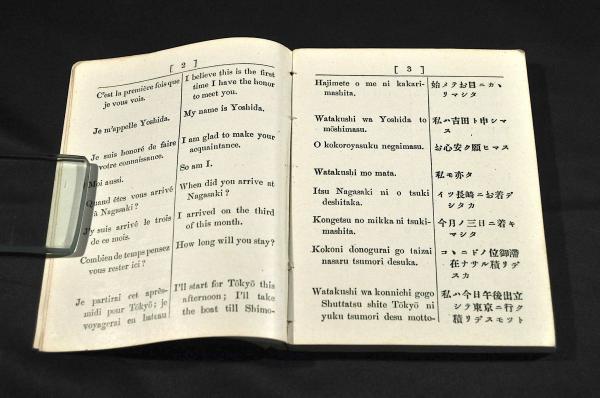 [ 2 ]
C'est la première fois que
je vous vois.
Je m'appelle Yoshida.
Je suis honoré de faire
votre connaissance.
Moi aussi.
Quand êtes vous arrivé
à Nagasaki ?
J'y suis arrivé le trois
de ce mois.
Combien de temps pensez
vous rester ici ?
Je partirai cet après-
midi pour Tōkyō ; je
voyagerai en bateau
I believe this is the first
time I have the honor
to meet you.
My name is Yoshida.
I am glad to make your
acquaintance.
So am I.
When did you arrive at
Nagasaki ?
I arrived on the third
of this month.
How long will you stay?
I'll start for Tōkyō this
afternoon ; I'll take
the boat till Shimo-
[ 3 ]
Hajimete o me ni kakari-
mashita.
Watakushi wa Yoshida to
mōshimasu.
O kokoroyasuku negaimasu.
Watakushi mo mata.
Itsu Nagasaki ni o tsuki
deshitaka.
Kongetsu no mikka ni tsuki-
mashita.
Kokoni donogurai go taizai
nasaru tsumori desuka.
Watakushi wa konnichi gogo
Shuttatsu shite Tōkyō ni
yuku tsumori desu motto-
始メテお目ニカヽ
リマシタ
私ハ吉田ト申シマ
ス
お心安ク願ヒマス
私モ亦タ
イツ長崎ニお着デ
シタカ
今月ノ三日ニ着キ
マシタ
コヽニドノ位御滯
在ナサル積リデ
スカ
私ハ今日午後出立
シテ東京ニ行ク
積リデスモット